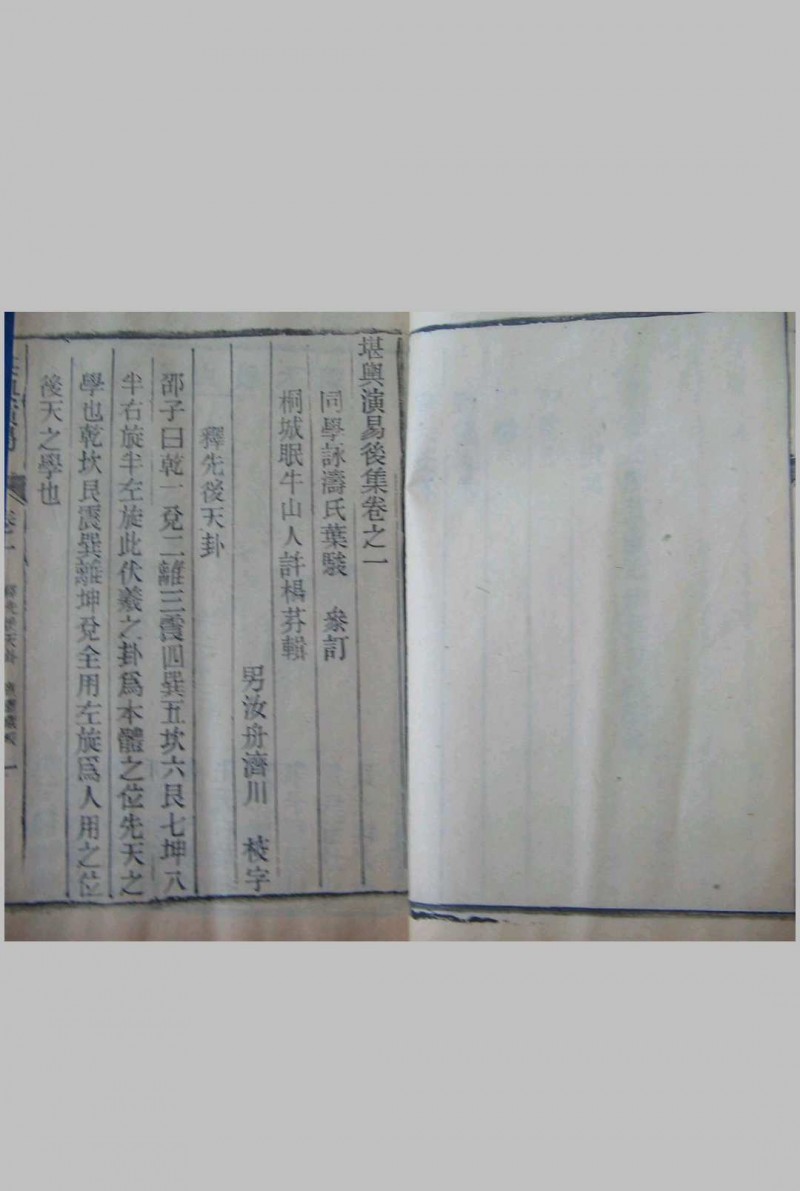 堪輿演易後集卷之一
同學詠濤氏葉駿 叅訂
桐城眠牛山人許楊芬輯
男汝舟濟川 校字
釋先後天卦
邵子曰乾一兌二離三震四巽五坎六艮七坤八
半右旋半左旋此伏羲之卦爲本體之位先天之
學也乾坎艮震巽離坤兌全用左旋爲人用之位
後天之學也
卷之一 釋先後天卦 一